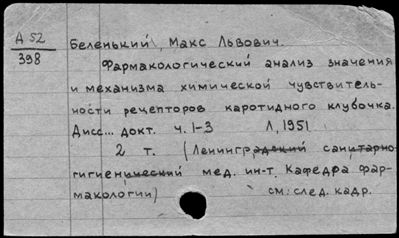 А 52
398
Беленький, Макс Львович.
Фармакологический анализ значения
и механизма химической чувствитель-
ности рецепторов каротидного клубочка.
Дисс... докт. ч. 1-3 Л, 1951
2 т. (Ленинградский санитарно-
гигиенический мед. ин-т. Кафедра фар-
макологии) см. след. кадр.